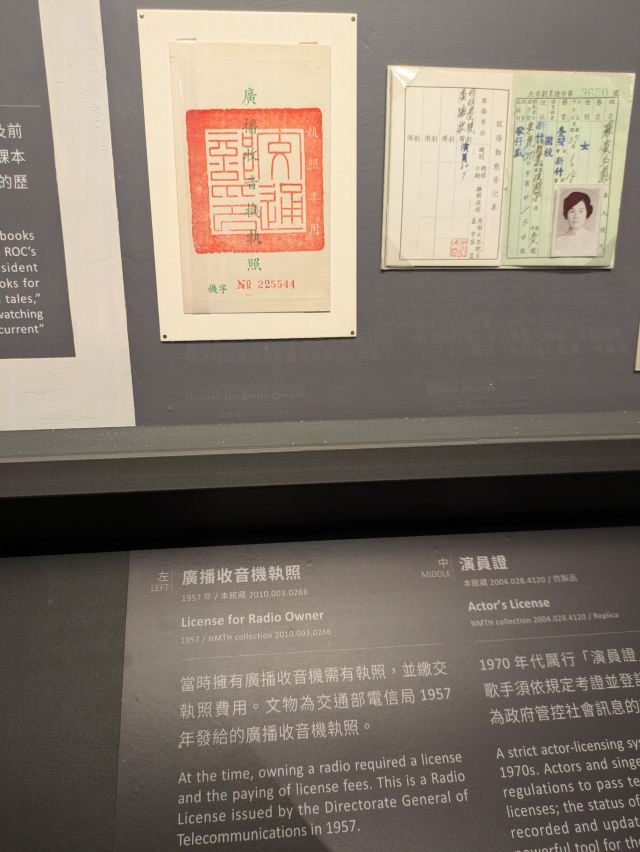 及前
課本
的歷
books
ROC's
sident
oks for
tales,"
watching
current"
廣播收音機執照
執照專用
交通
機字 № 225544
服務動態登記表
演員
新竹
左
LEFT
廣播收音機執照
1957 年 / 本館藏 2010.003.0266
License for Radio Owner
1957 / NMTH collection 2010.003.0266
當時擁有廣播收音機需有執照，並繳交
執照費用。文物為交通部電信局 1957
年發給的廣播收音機執照。
At the time, owning a radio required a license
and the paying of license fees. This is a Radio
License issued by the Directorate General of
Telecommunications in 1957.
中
MIDDLE
演員證
本館藏 2004.028.4120 / 仿製品
Actor's License
NMTH collection 2004.028.4120 / Replica
1970 年代厲行「演員證」
歌手須依規定考證並登記
為政府管控社會訊息的
A strict actor-licensing sys
1970s. Actors and singe
regulations to pass te
licenses; the status of
recorded and updat
powerful tool for the